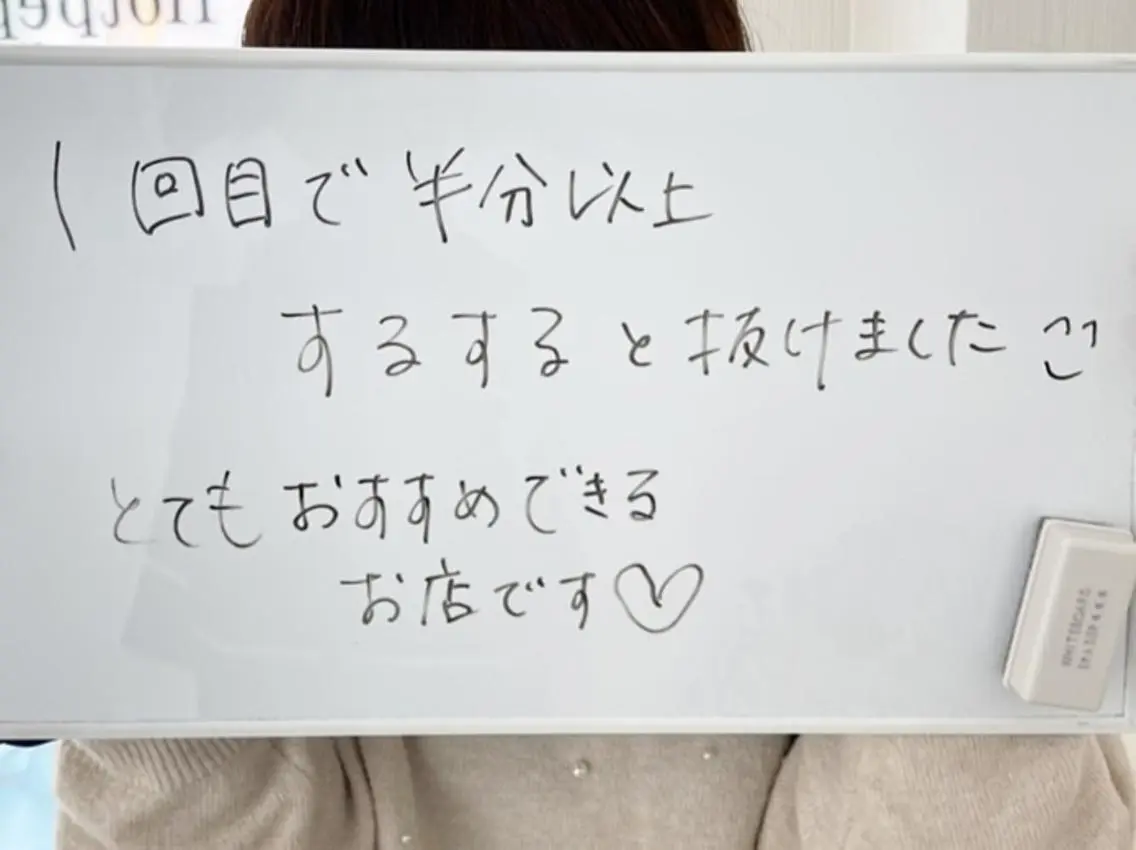 1回目で半分以上
するすると抜けました
とてもおすすめできる
お店です♡
WHITEBOARD
ERASER